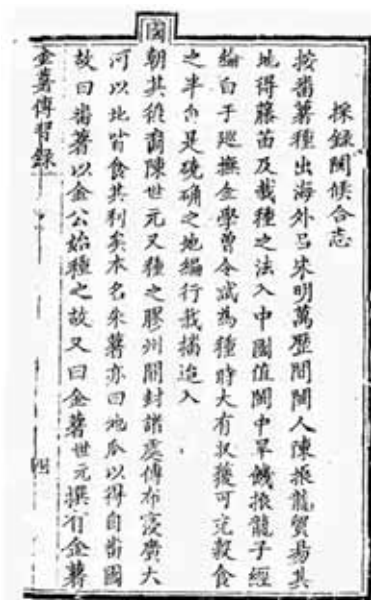 採錄閩侯合志
按番薯種出海外呂宋明萬歷間閩人陳振龍貿易其
地得藤苗及栽種之法入中國值閩中旱饑振龍子經
綸白于巡撫金學曾令試為種時大有收穫可充穀食
之半自是硗确之地徧行栽播迨入
國
朝其裔孫陳世元又種之膠州開封諸處傳布寖廣大
河以北皆食其利矣本名朱薯亦曰地瓜以得自番國
故曰番薯以金公始種之故又曰金薯世元撰有金薯
金薯傳習錄
四